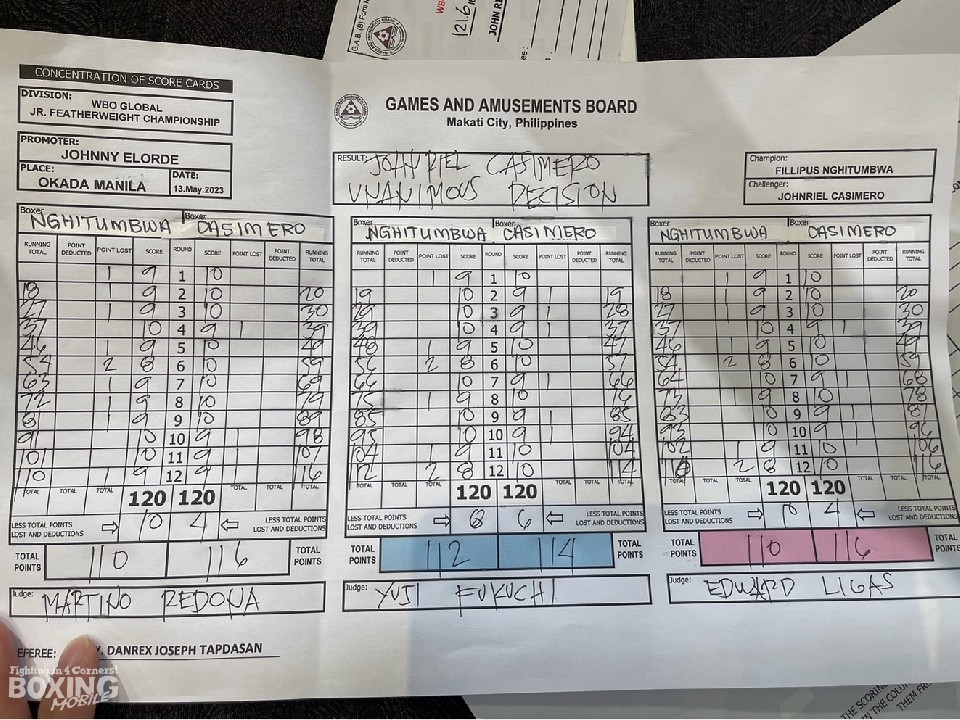 G.A.B. (B) Form N
WB
121.6
JOHN RI
CONCENTRATION OF SCORE CARDS
DIVISION:
WBO GLOBAL
JR. FEATHERWEIGHT CHAMPIONSHIP
PROMOTER:
JOHNNY ELORDE
PLACE:
OKADA MANILA
DATE:
13.May.2023
GAMES AND AMUSEMENTS BOARD
Makati City, Philippines
RESULT: JOHNRIEL CASIMERO
UNANIMOUS DECISION
Champion:
FILLIPUS NGHITUMBWA
Challenger:
JOHNRIEL CASIMERO
Boxer NGHITUMBWA Boxer CASIMERO
RUNNING TOTAL POINT DEDUCTED POINT LOST SCORE ROUND SCORE POINT LOST POINT DEDUCTED RUNNING TOTAL
1 9 1 10
18 1 9 2 10 20
27 1 9 3 10 30
37 10 4 9 1 39
46 1 9 5 10 49
54 2 8 6 10 59
63 1 9 7 10 69
72 1 9 8 10 79
81 1 9 9 10 89
91 10 10 9 1 98
101 10 11 9 1 107
110 1 9 12 9 1 116
TOTAL TOTAL TOTAL 120 120 TOTAL TOTAL TOTAL
LESS TOTAL POINTS LOST AND DEDUCTIONS 10 4 LESS TOTAL POINTS LOST AND DEDUCTIONS
TOTAL POINTS 110 116 TOTAL POINTS
Judge: MARTINO REDONA
Boxer NGHITUMBWA Boxer CASIMERO
RUNNING TOTAL POINT DEDUCTED POINT LOST SCORE ROUND SCORE POINT LOST POINT DEDUCTED RUNNING TOTAL
1 9 1 10
19 10 2 9 1 19
29 10 3 9 1 28
39 10 4 9 1 37
48 1 9 5 10 47
2 8 6 10
66 10 7 9 1 66
75 1 9 8 10 76
85 10 9 9 1 85
95 10 10 9 1 94
104 1 9 11 10 104
112 2 8 12 10 114
TOTAL TOTAL TOTAL 120 120 TOTAL TOTAL TOTAL
LESS TOTAL POINTS LOST AND DEDUCTIONS 8 6 LESS TOTAL POINTS LOST AND DEDUCTIONS
TOTAL POINTS 112 114 TOTAL POINTS
Judge: YUJI FUKUCHI
Boxer NGHITUMBWA Boxer CASIMERO
RUNNING TOTAL POINT DEDUCTED POINT LOST SCORE ROUND SCORE POINT LOST POINT DEDUCTED RUNNING TOTAL
1 9 1 10
18 1 9 2 10 20
27 1 9 3 10 30
37 10 4 9 1 39
46 1 9 5 10 49
54 2 8 6 10 59
64 10 7 9 1 68
73 1 9 8 10 78
83 10 9 9 1 87
93 10 10 9 1 96
102 1 9 11 10 106
2 8 12 10 116
TOTAL TOTAL TOTAL 120 120 TOTAL TOTAL TOTAL
LESS TOTAL POINTS LOST AND DEDUCTIONS 10 4 LESS TOTAL POINTS LOST AND DEDUCTIONS
TOTAL POINTS 110 116 TOTAL POINTS
Judge: EDWARD LIGAS
EFEREE: DANREX JOSEPH TAPDASAN
Fighting in 4 Corners!
BOXING
MOBILE
THE SCORING
N THE COLU
THEM FR